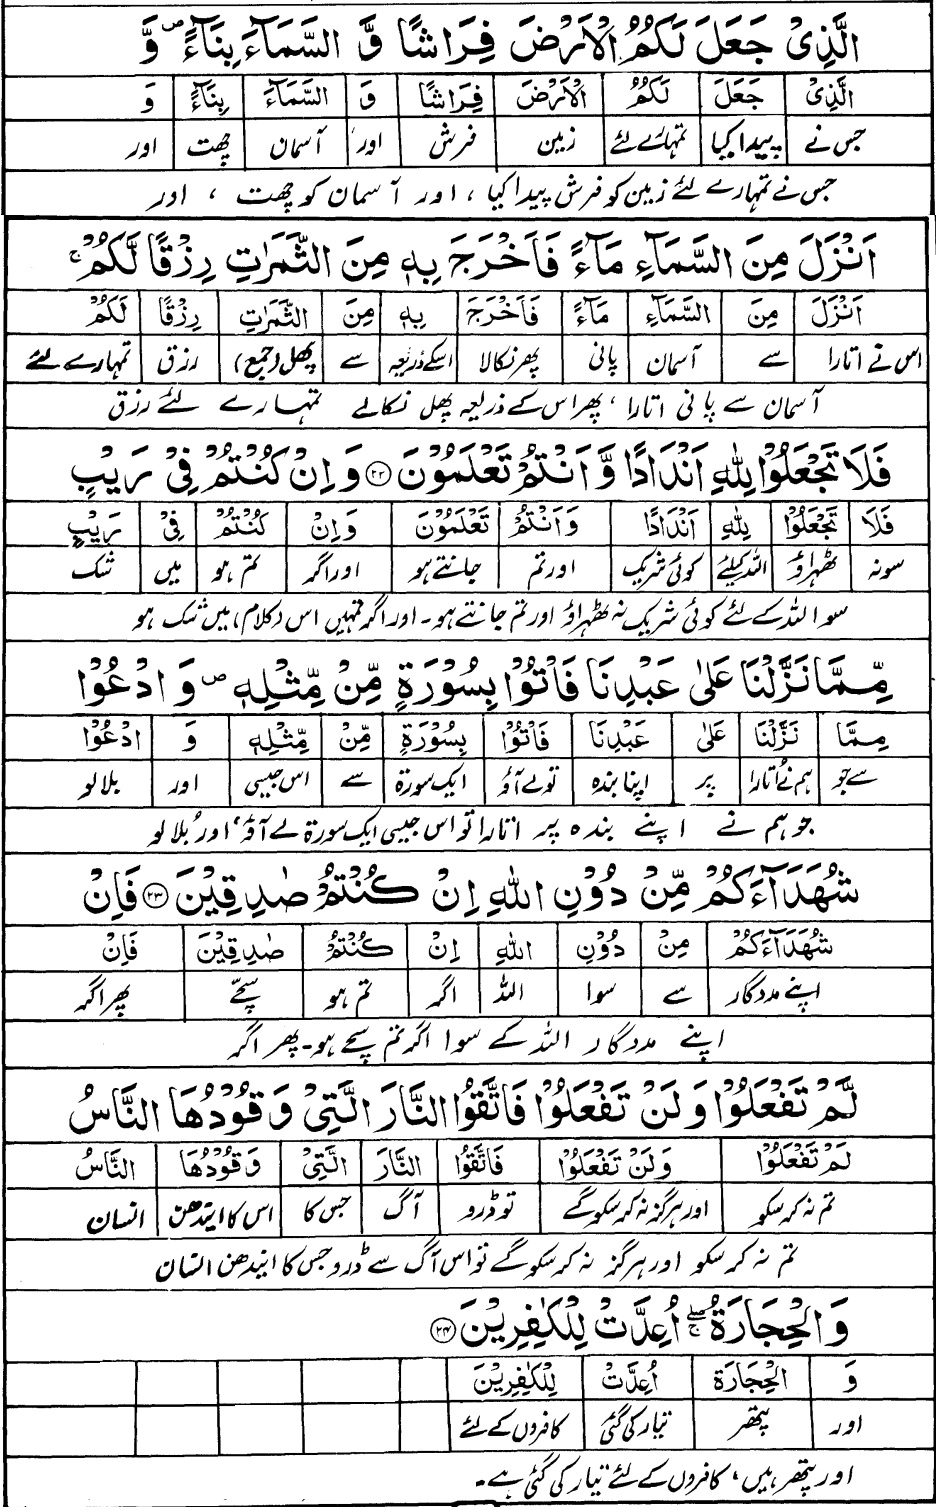 الَّذِیْ جَعَلَ لَكُمُ الْاَرْضَ فِرَاشًا وَّ السَّمَآءَ بِنَآءً ۪ وَّ
الَّذِیْ جَعَلَ لَكُمُ الْاَرْضَ فِرَاشًا وَّ السَّمَآءَ بِنَآءً وَ
جس نے پیدا کیا تمہارے لئے زمین فرش اور آسمان چھت اور
جس نے تمہارے لئے زمین کو فرش پیدا کیا ، اور آسمان کو چھت ، اور
اَنْزَلَ مِنَ السَّمَآءِ مَآءً فَاَخْرَجَ بِهٖ مِنَ الثَّمَرٰتِ رِزْقًا لَّكُمْ ۚ
اَنْزَلَ مِنَ السَّمَآءِ مَآءً فَاَخْرَجَ بِهٖ مِنَ الثَّمَرٰتِ رِزْقًا لَكُمْ
اس نے اتارا سے آسمان پانی پھر نکالا اسکے ذریعہ سے پھل (جمع) رزق تمہارے لئے
آسمان سے پانی اتارا ، پھر اس کے ذریعہ پھل نکالے تمہارے لئے رزق
فَلَا تَجْعَلُوْا لِلّٰهِ اَنْدَادًا وَّ اَنْتُمْ تَعْلَمُوْنَ ۝۲۲ وَ اِنْ كُنْتُمْ فِیْ رَیْبٍ
فَلَا تَجْعَلُوْا لِلّٰهِ اَنْدَادًا وَاَنْتُمْ تَعْلَمُوْنَ وَاِنْ كُنْتُمْ فِیْ رَیْبٍ
سو نہ ٹھہراؤ اللہ کیلئے کوئی شریک اور تم جانتے ہو اور اگر تم ہو میں شک
سو اللہ کے لئے کوئی شریک نہ ٹھہراؤ اور تم جانتے ہو۔ اور اگر تمہیں اس (کلام) میں شک ہو
مِّمَّا نَزَّلْنَا عَلٰی عَبْدِنَا فَاْتُوْا بِسُوْرَةٍ مِّنْ مِّثْلِهٖ ۪ وَ ادْعُوْا
مِمَّا نَزَّلْنَا عَلٰی عَبْدِنَا فَاْتُوْا بِسُوْرَةٍ مِّنْ مِّثْلِهٖ وَ ادْعُوْا
سے جو ہم نے اتارا پر اپنا بندہ تو لے آؤ ایک سورۃ سے اس جیسی اور بلا لو
جو ہم نے اپنے بندہ پر اتارا تو اس جیسی ایک سورۃ لے آؤ، اور بُلا لو
شُهَدَآءَكُمْ مِّنْ دُوْنِ اللّٰهِ اِنْ كُنْتُمْ صٰدِقِیْنَ ۝۲۳ فَاِنْ
شُهَدَآءَكُمْ مِنْ دُوْنِ اللّٰهِ اِنْ كُنْتُمْ صٰدِقِیْنَ فَاِنْ
اپنے مددگار سے سوا اللہ اگر تم ہو سچے پھر اگر
اپنے مددگار اللہ کے سوا اگر تم سچے ہو۔ پھر اگر
لَّمْ تَفْعَلُوْا وَ لَنْ تَفْعَلُوْا فَاتَّقُوا النَّارَ الَّتِیْ وَ قُوْدُهَا النَّاسُ
لَمْ تَفْعَلُوْا وَلَنْ تَفْعَلُوْا فَاتَّقُوا النَّارَ الَّتِیْ وَقُوْدُهَا النَّاسُ
تم نہ کر سکو اور ہرگز نہ کر سکو گے تو ڈرو آگ جس کا اس کا ایندھن انسان
تم نہ کر سکو اور ہرگز نہ کر سکو گے تو اس آگ سے ڈرو جس کا ایندھن انسان
وَ الْحِجَارَةُ ۖۚ اُعِدَّتْ لِلْكٰفِرِیْنَ ۝۲۴
وَ الْحِجَارَةُ اُعِدَّتْ لِلْكٰفِرِیْنَ
اور پتھر تیار کی گئی کافروں کے لئے
اور پتھر ہیں، کافروں کے لئے تیار کی گئی ہے۔